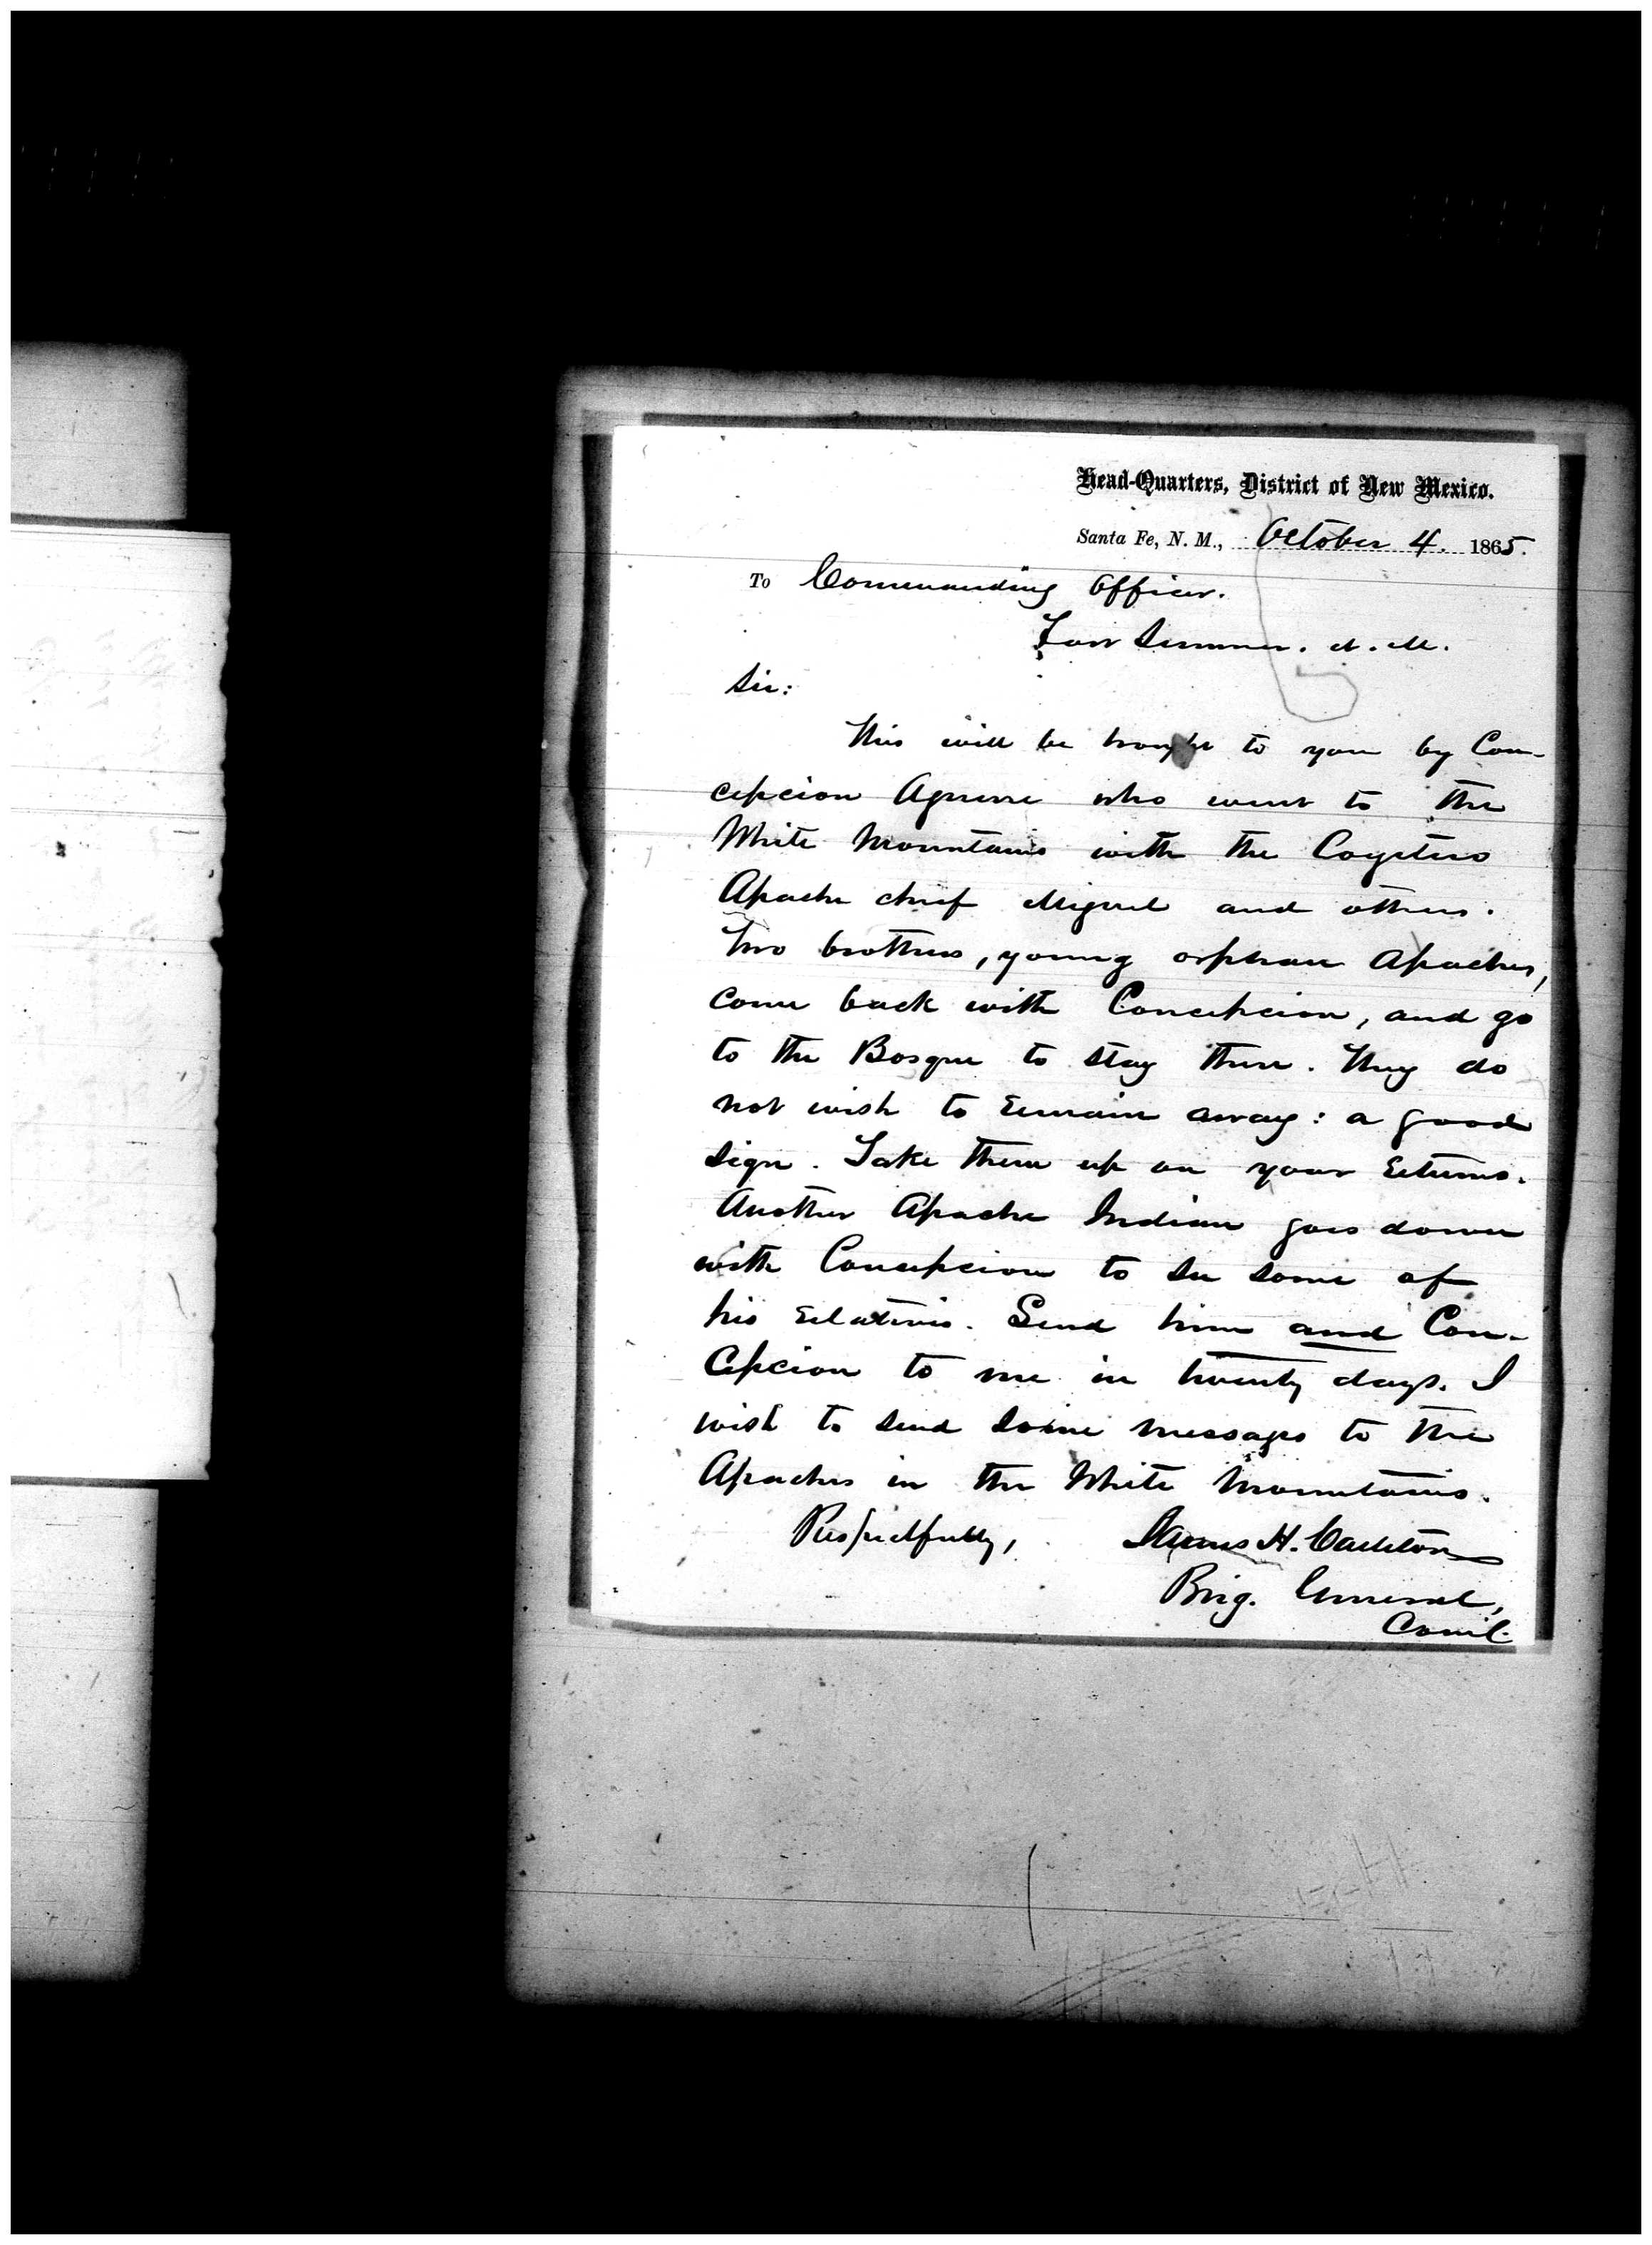 Head-Quarters, District of New Mexico.
Santa Fe, N. M., October 4. 1865.
To Commanding Officer.
Fort Sumner. N. M.
Sir:
This will be brought to you by Con-
cepcion Aguirre who went to the
White Mountains with the Coyotero
Apache chief Miguel and others.
Two brothers, young orphan Apaches,
come back with Concepcion, and go
to the Bosque to stay there. They do
not wish to remain away: a good
sign. Take them up on your returns.
Another Apache Indian goes down
with Concepcion to see some of
his relatives. Send him and Con-
cepcion to me in twenty days. I
wish to send some messages to the
Apaches in the White Mountains.
Respectfully, James H. Carleton
Brig. General,
Comd'g.